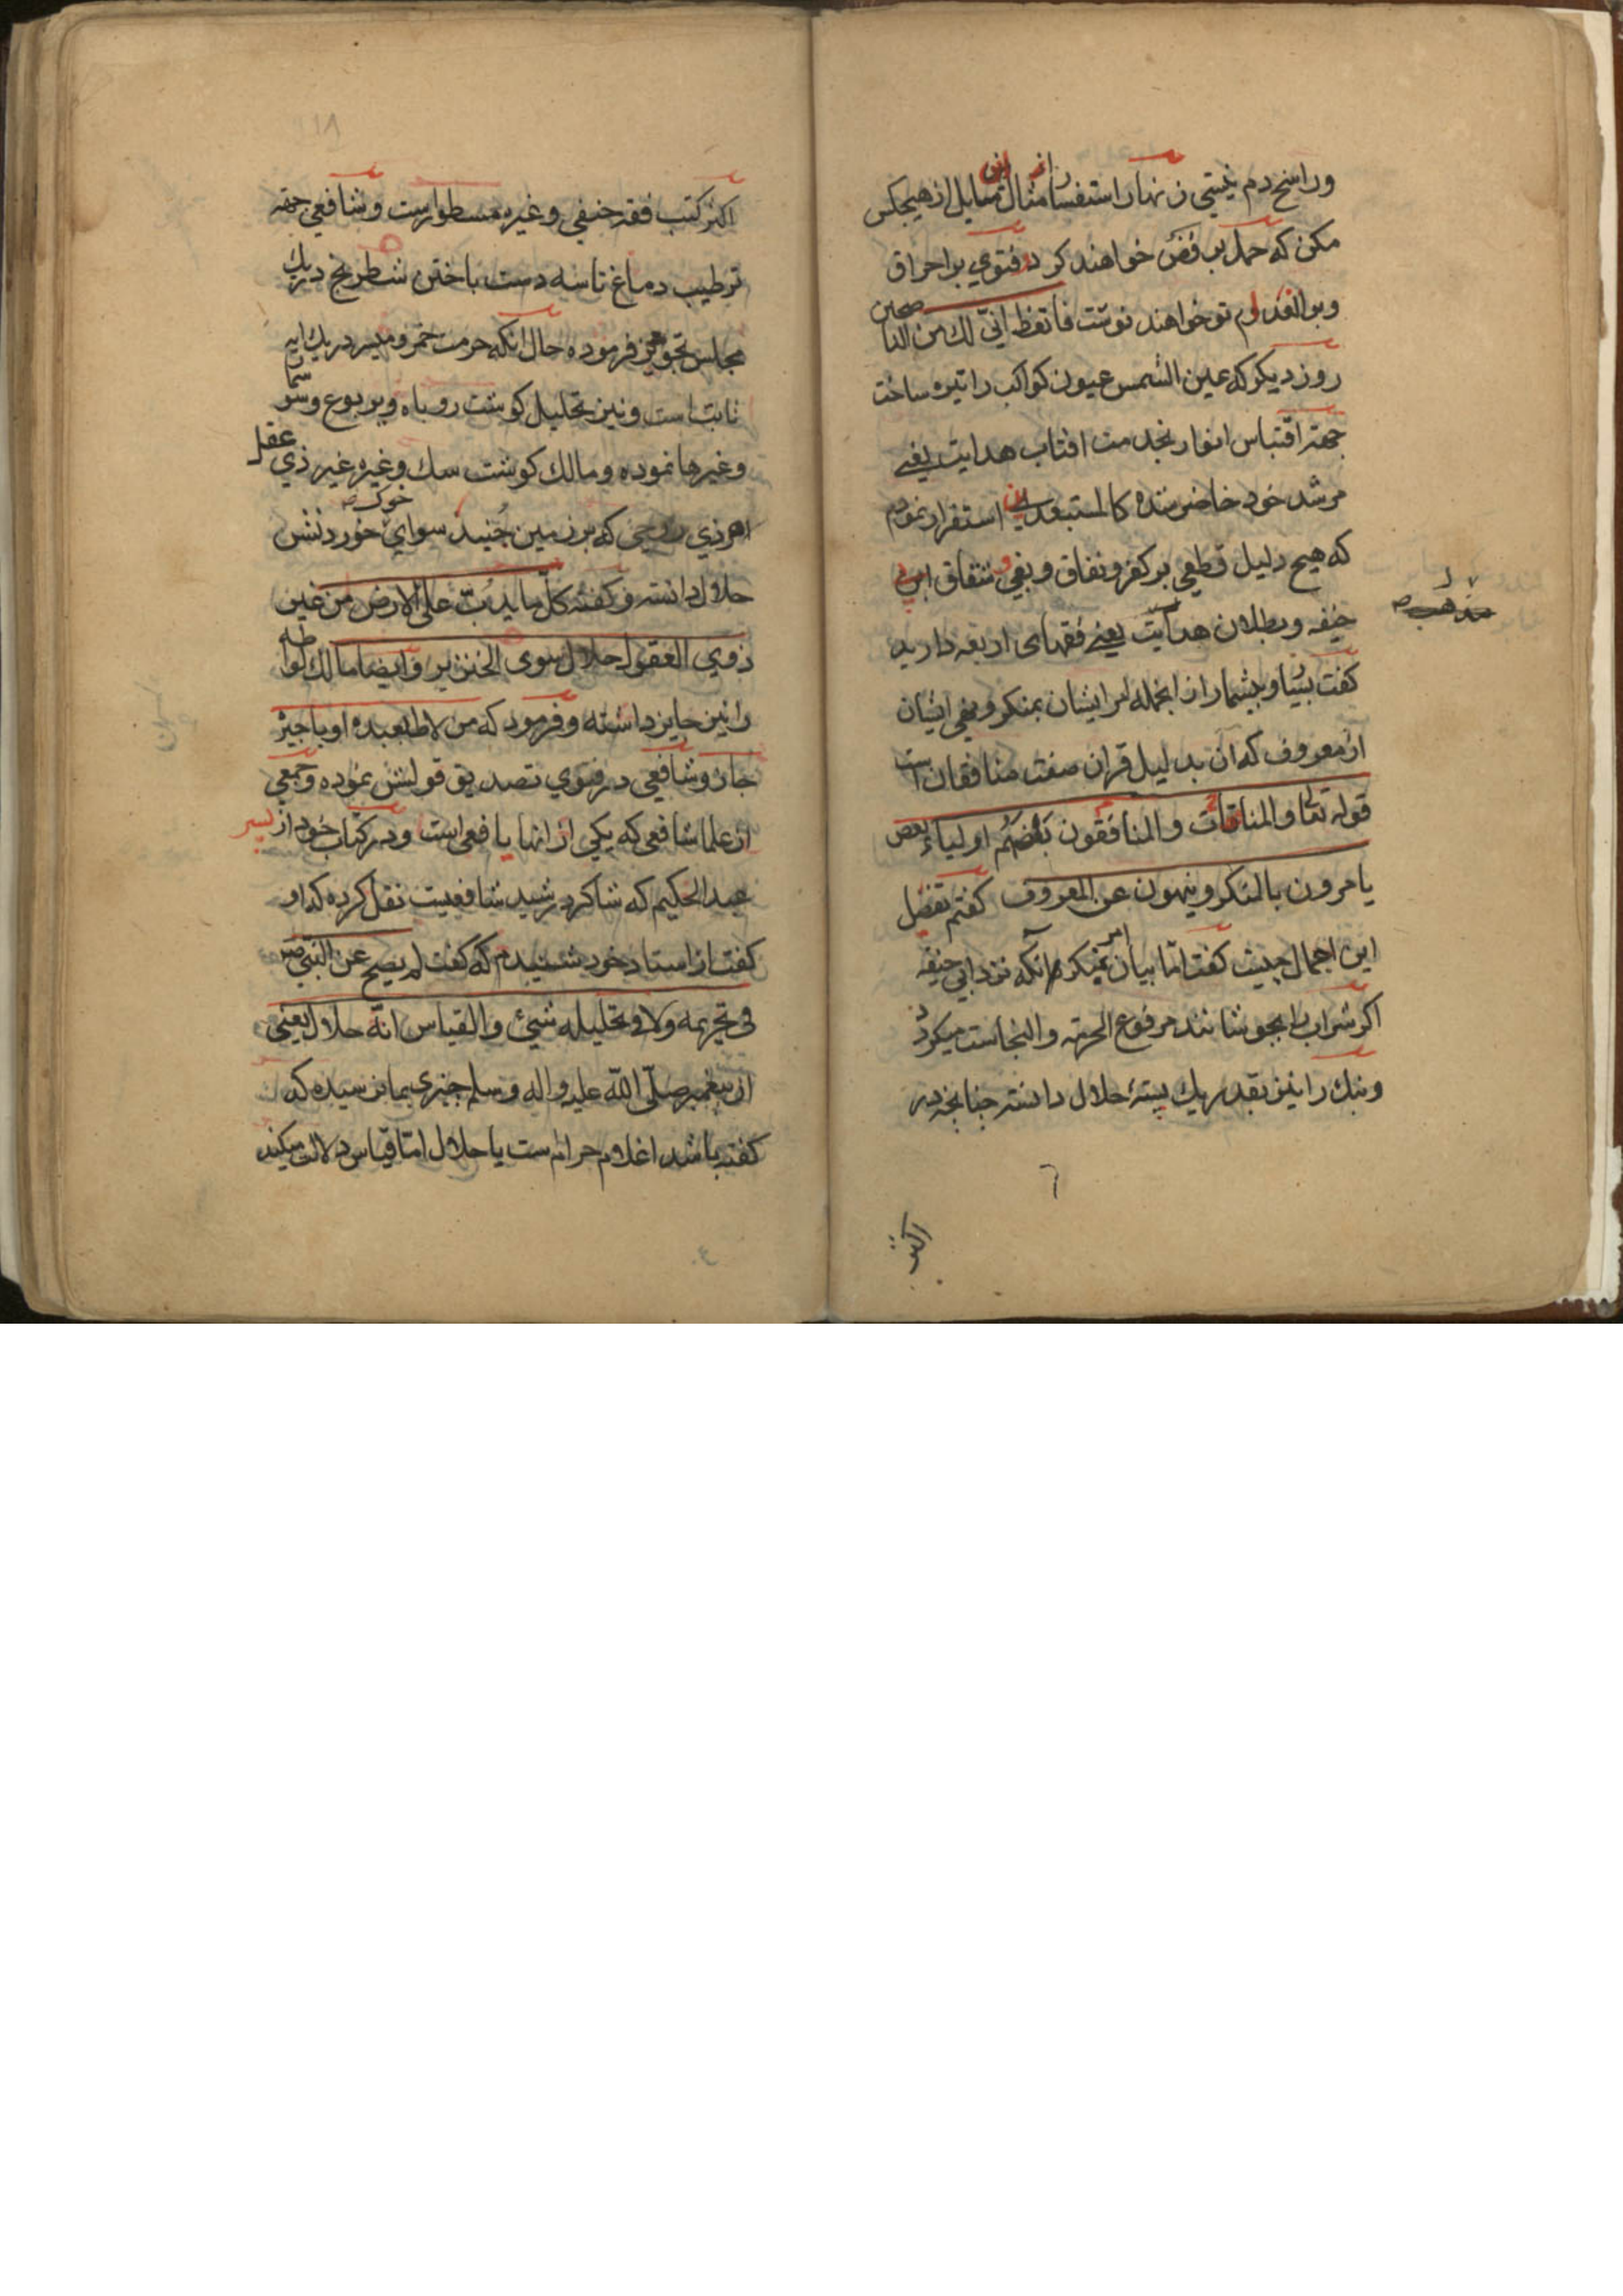 وراسخ دم نیتی زنهار استفسار امثال این مسایل از هیچکس
مکن که حمل بر رفض خواهند کرد و فتوی بر احراق
تو خواهند نوشت فاتعظ انّی لک من الناصحین
روز دیکر که عین الشمس عیون کواکب را تیره ساخت
جهتر اقتباس انوار بخدمت افتاب هدایت یعنے
مرشد خود حاضر شده کالمستبعدین استفرار نمودم
که هیچ دلیل قطعی بر کفر و نفاق و بغی و شقاق ابی
حنیفه و بطلان مذهب یعنے فقهای اربعه دارید
کفت بسیار و بیشمار از انجمله امر ایشان بمنکر و نهی ایشان
از معروف که ان بدلیل قران صفت منافقان است
قوله تعا والمنافقات والمنافقون بعضهم اولیاء بعض
یامرون بالمنکر وینهون عن المعروف کفتم تفضل
این اجمال چیست کفت امّا بیان امر بمنکر انکه نزد ابی حنیفه
اکر شراب را بجوشانند مرفوع الحرمة والنجاست میکردد
و بنک را نیز بقدر یک پستهٔ حلال دانسته چنانچه در
اکثر کتب
اکثر کتب فقه حنیفی و غیره مسطوراست و شافعی جهة
ترطیب دماغ تا سه دست باختن شطرنج در یک
مجلس تجویز فرموده حال انکه حرمت خمر و میسر در یک ایه
ثابت است و نیز تحلیل کوشت روباه و یربوع و سوسمار
وغیرها نموده و مالک کوشت سک و غیره غیر ذی عقل
از هر ذی روحی که بر زمین جُنبد سوای خوک خوردنش
حلال دانسته و کفته کلّ ما یدبّ علی الارض من غیر
ذوی العقول حلال سوی الخنزیر وایضا مالک لواطه
را نیز جایز داشته و فرمود که من لاط بعبده او باجیر
جاز و شافعی در فتوی تصدیق قولش نموده و جمعی
از علما شافعی که یکی از انها یافعی است و در کتاب خود از پسر
عبد الحکیم که شاکرد رشید شافعیت نقل کرده که او
کفت از استاد خود شنیدم که کفت لم یصح عن النبی ص
فی تحریمه ولا فی تحلیله شیئ والقیاس انّه حلال یعنی
از پیغمبر صلّی اللّه علیه و اله وسلم چیزی بما نرسیده که
کفته باشد اغلام حرام ست یا حلال امّا قیاس دلالت میکند